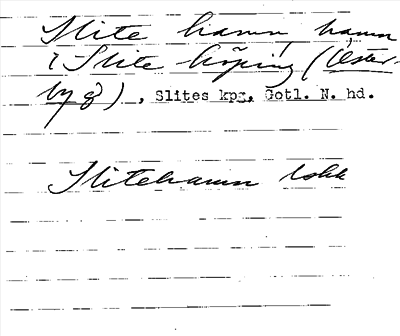 Slite hamn, hamn
i Slite köping (Öster-
by g), Slites kpg, Gotl. N. hd.
Slitehamn